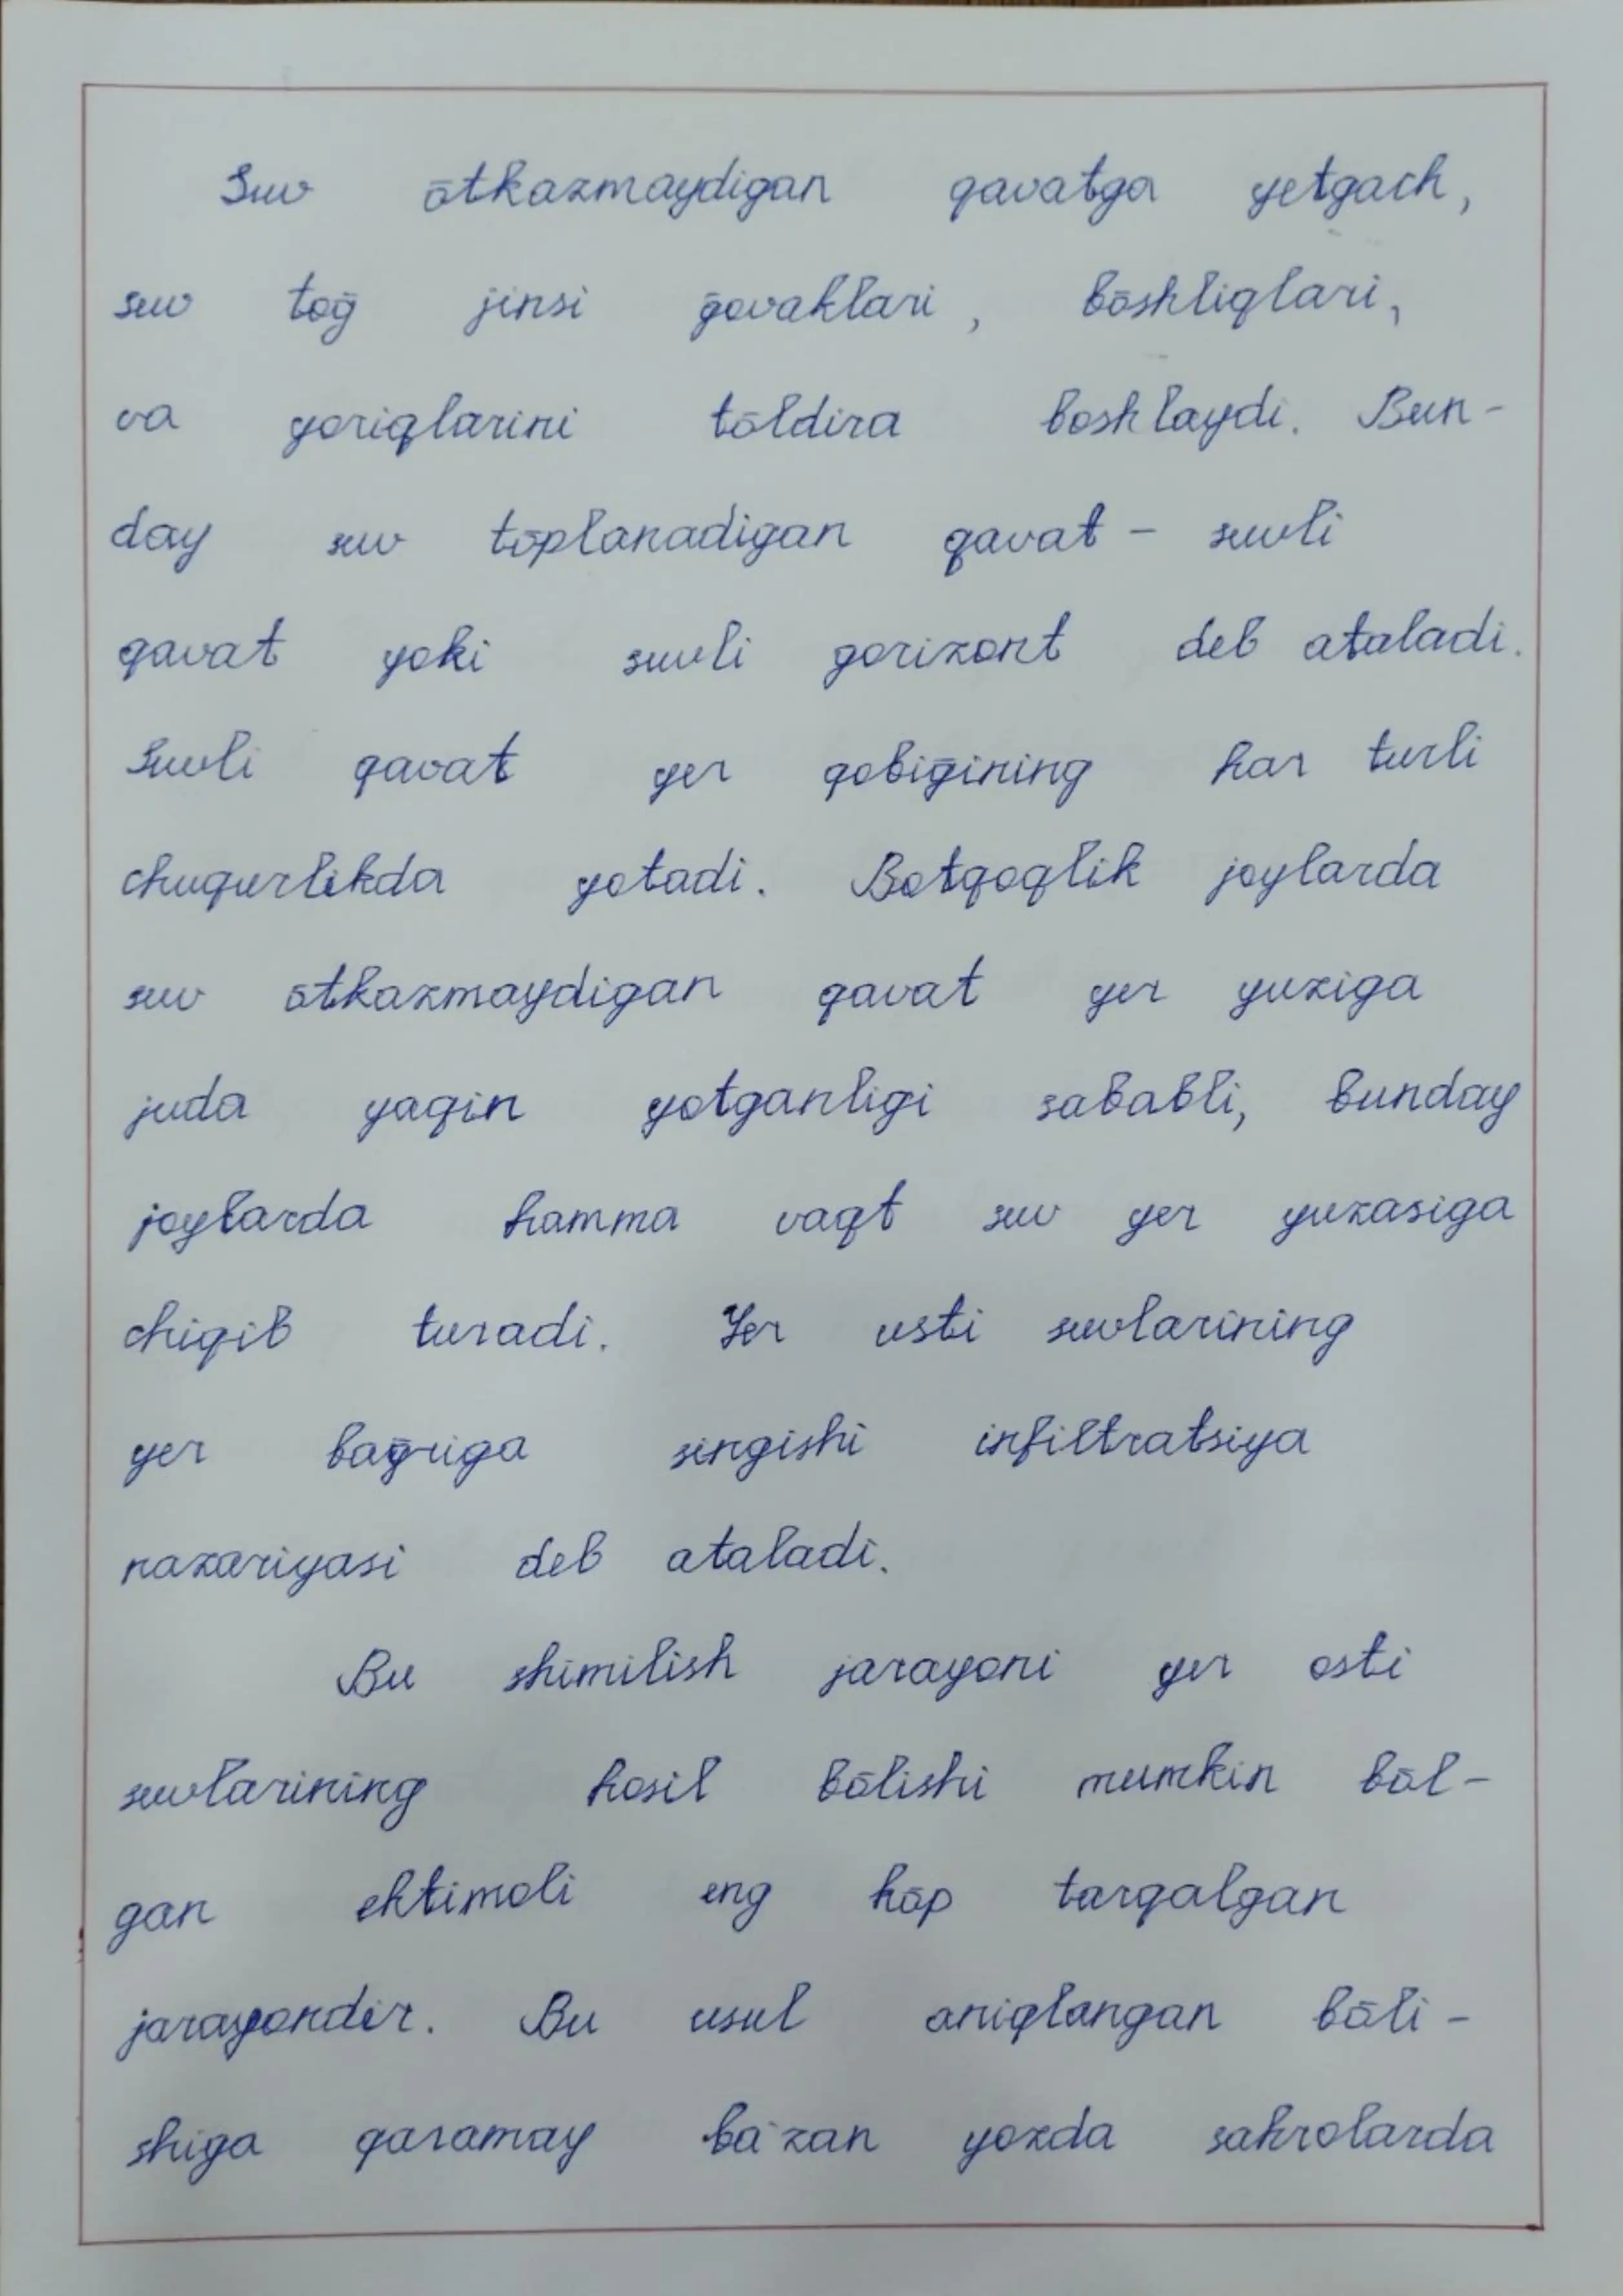 Suv ōtkazmaydigan qavatga yetgach,
suv toḡ jinsi ḡovaklari, bōshliqlari,
va yoriqlarini tōldira boshlaydi. Bun-
day suv tōplanadigan qavat - suvli
qavat yoki suvli gorizont deb ataladi.
Suvli qavat yer qobiḡining har turli
chuqurlikda yotadi. Botqoqlik joylarda
suv ōtkazmaydigan qavat yer yuziga
juda yaqin yotganligi sababli, bunday
joylarda hamma vaqt suv yer yuzasiga
chiqib turadi. Yer usti suvlarining
yer baḡriga singishi infiltratsiya
nazariyasi deb ataladi.
Bu shimilish jarayoni yer osti
suvlarining hosil bōlishi mumkin bōl-
gan ehtimoli eng kōp tarqalgan
jarayondir. Bu usul aniqlangan bōli-
shiga qaramay ba'zan yozda sahrolarda